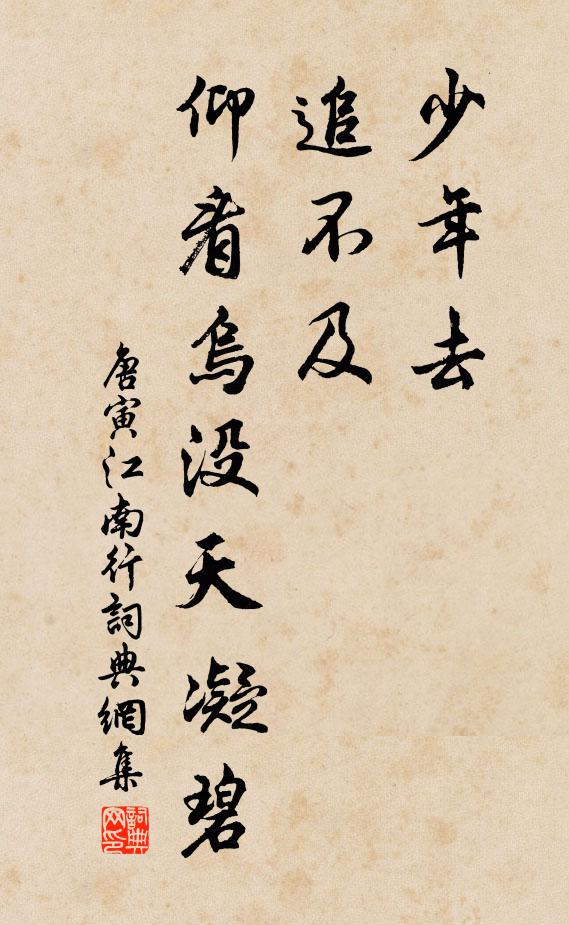 少年去
追不及
仰看烏没天凝碧
唐寅江南行詞典網集
詞典
网印